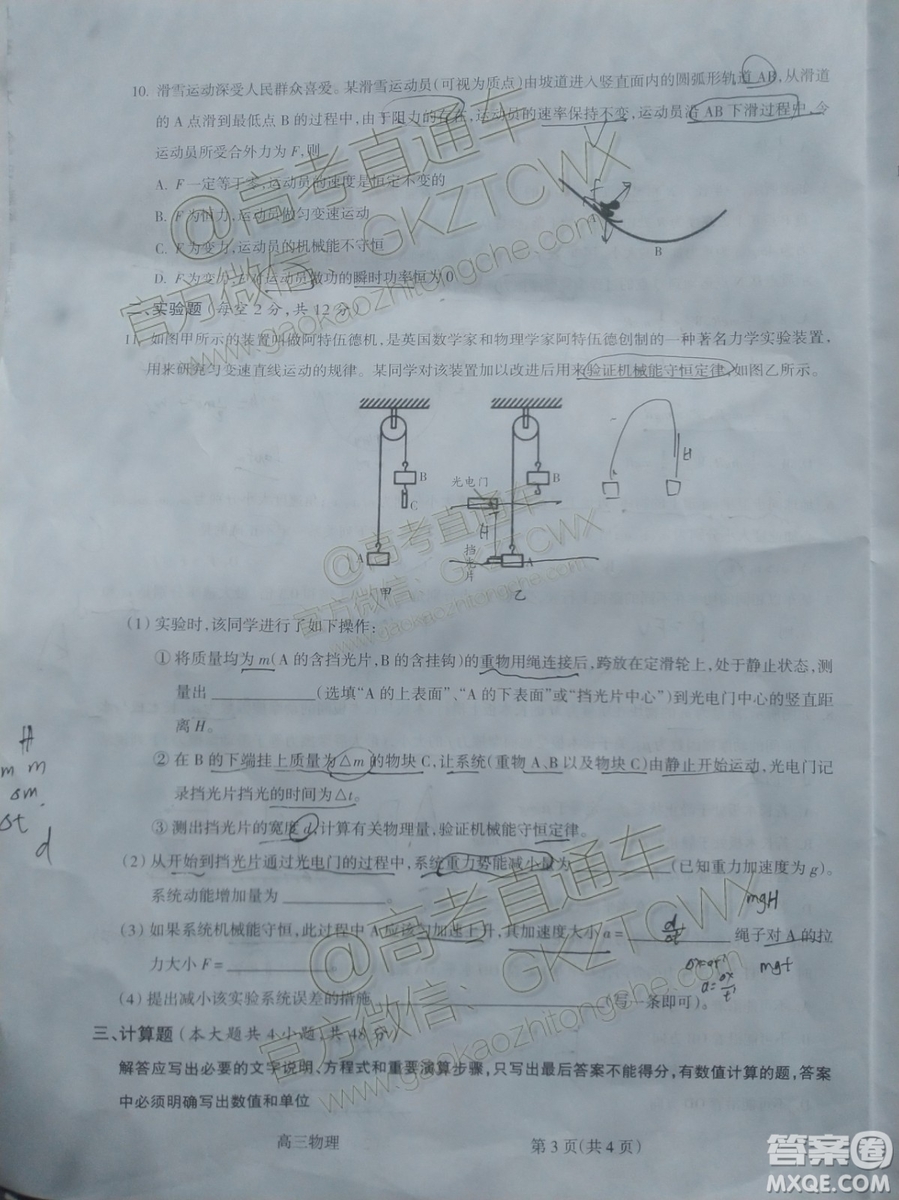 10. 滑雪运动深受人民群众喜爱。某滑雪运动员(可视为质点)由坡道进入竖直面内的圆弧形轨道 AB,从滑道
的 A 点滑到最低点 B 的过程中,由于阻力的存在,运动员的速率保持不变,运动员沿 AB 下滑过程中,令
运动员所受合外力为 F,则
A. F 一定等于零,运动员的速度是恒定不变的
B. F 为恒力,运动员做匀变速运动
C. F 为变力,运动员的机械能不守恒
D. F 为变力,F对运动员做功的瞬时功率恒为 0
B
二、实验题(每空 2 分,共 12 分)
11. 如图甲所示的装置叫做阿特伍德机,是英国数学家和物理学家阿特伍德创制的一种著名力学实验装置,
用来研究匀变速直线运动的规律。某同学对该装置加以改进后用来验证机械能守恒定律,如图乙所示。
B
C
A
甲
光电门
B
H
挡光片
A
乙
H
(1) 实验时,该同学进行了如下操作:
① 将质量均为 m(A 的含挡光片,B 的含挂钩)的重物用绳连接后,跨放在定滑轮上,处于静止状态,测
量出 __________ (选填“A 的上表面”、“A 的下表面”或“挡光片中心”)到光电门中心的竖直距
离 H。
② 在 B 的下端挂上质量为 △m 的物块 C,让系统(重物 A、B 以及物块 C)由静止开始运动,光电门记
录挡光片挡光的时间为△t。
③ 测出挡光片的宽度 d,计算有关物理量,验证机械能守恒定律。
H
m m
△m
△t
d
(2) 从开始到挡光片通过光电门的过程中,系统重力势能减小量为 __________ (已知重力加速度为 g)。
系统动能增加量为 __________
mgH
(3) 如果系统机械能守恒,此过程中 A 应该匀加速上升,其加速度大小 a = __________ 绳子对 A 的拉
力大小 F = __________ 。
(4) 提出减小该实验系统误差的措施 __________ (写一条即可)。
三、计算题(本大题共 4 小题,共 48 分)
解答应写出必要的文字说明、方程式和重要演算步骤,只写出最后答案不能得分,有数值计算的题,答案
中必须明确写出数值和单位
高三物理 第 3 页(共 4 页)
@高考直通车
官方微信:GKZTCWX
www.gaokaozhitongche.com
@高考直通车
官方微信:GKZTCWX
www.gaokaozhitongche.com
@高考直通车
官方微信:GKZTCWX
www.gaokaozhitongche.com
答案圈
MXQE.COM